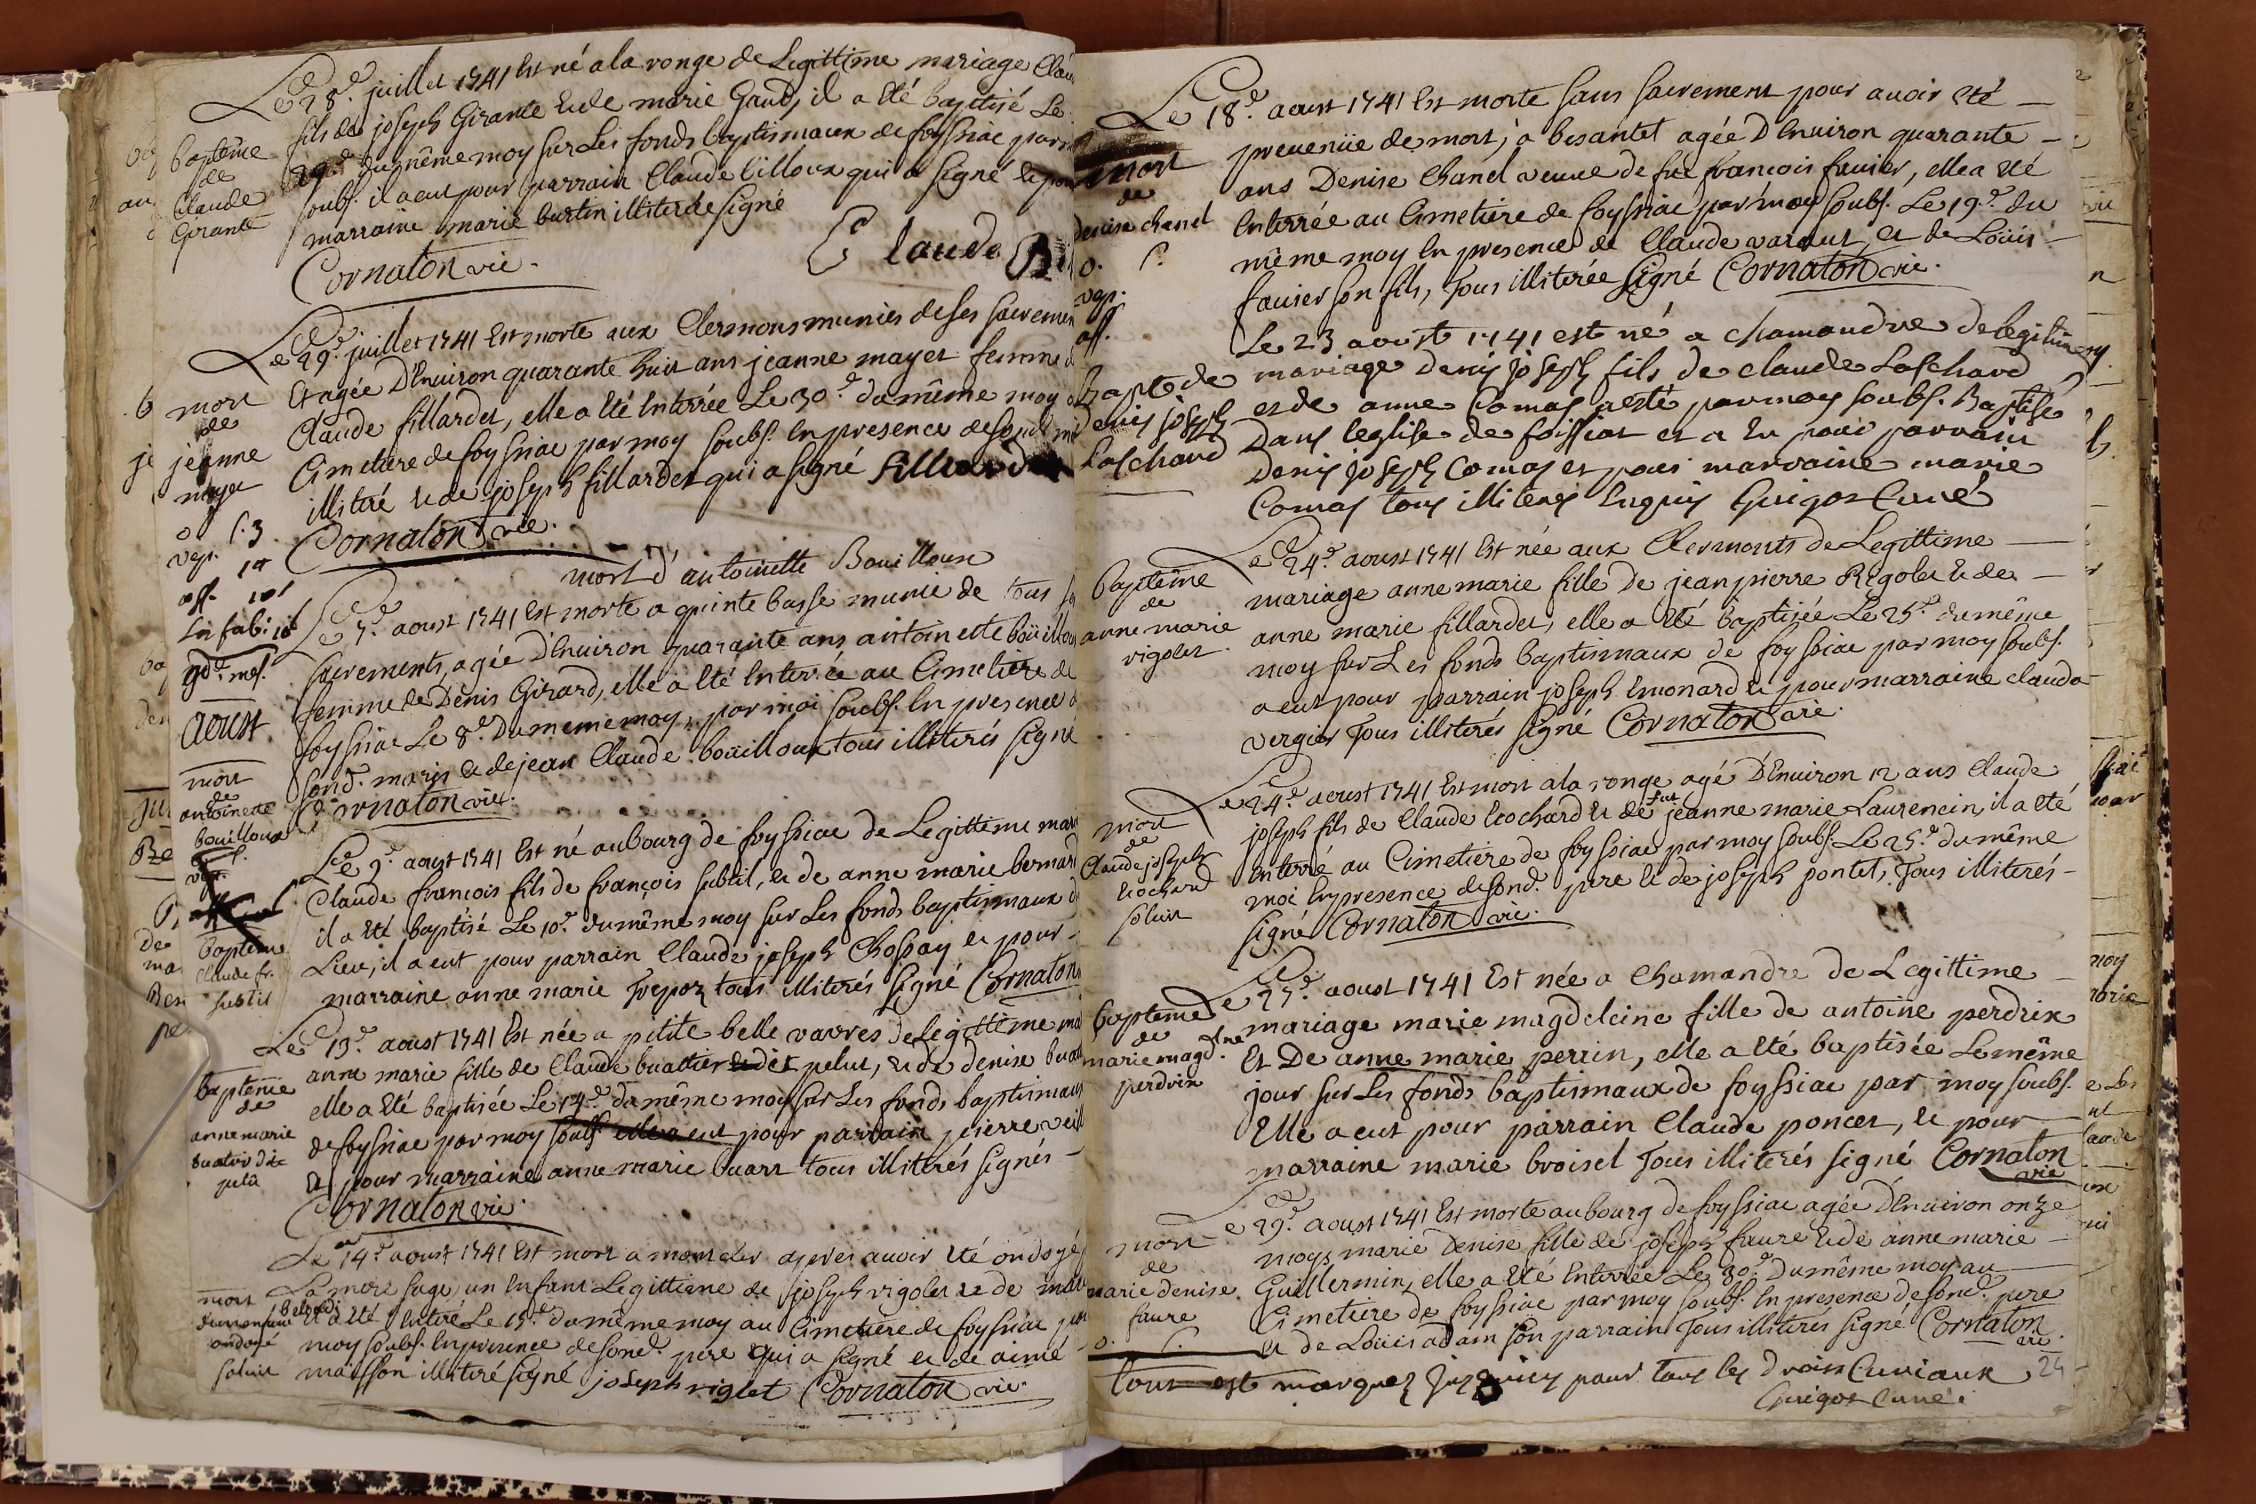 Le 28.e juillet 1741 Est né a la ronge de Legittime mariage
baptême
de
Claude
Girante
fils de joseph Girante et de marie Gaud, il a Eté baptisé Le
29.e du même moy sur Les fonds baptismaux de foyssiac par
soubs. il a eut pour parrain Claude billoux qui a signé et pour
marraine marie burtin illiterée signé
Cornaton vic.
Claude
Le 29.e juillet 1741 Est morte aux Clermons munies de ses sacremen
mort
de
jeanne
mayet
Et agée D'Enuiron quarante huit ans jeanne mayet femme
Claude fillardet, elle a Eté Enterrée Le 30.e du même moy
Cimetiere de foyssiac par moy soubs. En presence de
illitré et de joseph fillardet qui a signé
Cornaton vic.
mort d'antoinette Bouilloux
aoust
mort
de
antoinette
bouilloux
Le 7.e aoust 1741 Est morte a quinte basse munie de tous
sacrements, agée D'Enuiron quarante ans antoinette
femme de Denis Girard, elle a Eté Enterrée au Cimetiere de
foyssiac Le 8.e Du meme moy, par moi soubs. En presence
sond. maris et de jean Claude bouilloux tous illiterés signé
Cornaton vic.
baptême
Claude fr.
subtil
Le 9.e aoust 1741 Est né au bourg de foyssiac de Legittime
Claude francois fils de françois subtil, et de anne marie
il a Eté baptisé Le 10.e du même moy sur Les fonds baptismaux
Lieu, il a eut pour parrain Claude joseph Chossay et pour
marraine anne marie tous illiterés signé Cornaton
baptême
de
anne marie
Le 13.e aoust 1741 Est née a petite belle vavres de legittime
anne marie fille de Claude buattier dit pelut, et de denise
elle a Eté baptisée Le 14.e du même moy sur Les fonds
de foyssiac par moy soubs. elle a eut pour parrain pierre
et pour marraine anne marie buarr tous illiterés signés
Cornaton vic.
mort
ondoyé
solvit
Le 14.e aoust 1741 Est mort a apres avoir Eté ondoyé
La mere sage, un Enfant Legittime de joseph rigolet et de
Et a Eté Enterré Le 15.e du même moy au Cimetiere de foyssiac
moy soubs. En presence de sond. pere qui a signé et de aimé
maisson illitré signé joseph riglet Cornaton vic.
mort
de
denise chanel
Le 18.e aoust 1741 Est morte sans sacrement pour auoir Eté
preuenüe de mort, a besantet agée D'Enuiron quarante
ans Denise Chanel veuve de feu francois fauier, elle a Eté
Enterrée au Cimetiere de foyssiac par moy soubs. Le 19.e du
même moy En presence de Claude et de Loüis
fauier son fils, Tous illiterée signé Cornaton vic.
Bapt de
Denis joseph
Laschard
Le 23 aoust 1741 est né a chamandre de legitime
mariage Denis joseph fils de claude Laschard
et de anne Comas a esté par moy soubs. Baptisé
Dans l'eglise de foissiat et a eu pour parrain
Denis joseph Comas et pour marraine marie
Comas tous illiterés enquis Guigot Curé
baptême
de
anne marie
rigolet
Le 24.e aoust 1741 Est née aux Clermonts de Legittime
mariage anne marie fille de jean pierre Rigolet et de
anne marie fillardet, elle a Eté baptisée Le 25.e du même
moy sur Les fonds baptismaux de foyssiac par moy soubs.
a eut pour parrain joseph Emonard et pour marraine claude
vergier Tous illiterés signé Cornaton vic.
mort
de
Claude joseph
Ecochard
solvit
Le 24.e aoust 1741 Est mort a la ronge agé D'Enuiron 12 ans Claude
joseph fils de Claude Ecochard et de feu jeanne marie Laurencin, il a Eté
Enterré au Cimetiere de foyssiac par moy soubs. Le 25.e du même
moi En presence de sond. pere et de joseph pontet, Tous illiterés
signé Cornaton vic.
baptême
de
marie magd.lne
perdrix
Le 27.e aoust 1741 Est née a Chamandre de Legittime
mariage marie magdeleine fille de antoine perdrix
Et De anne marie perrin, elle a Eté baptisée Le même
jour sur Les fonds baptismaux de foyssiac par moy soubs.
Elle a eut pour parrain Claude poncet, et pour
marraine marie broisel Tous illiterés signé Cornaton
vic
mort
de
marie denise
faure
Le 29.e aoust 1741 Est morte au bourg de foyssiac agée D'Enuiron onze
moys marie Denise fille de joseph faure Et de anne marie
Guillermin, elle a Eté Enterrée Le 30.e Du même moy au
Cimetiere de foyssiac par moy soubs. En presence de sond. pere
et de Loüis adam son parrain Tous illiterés signé Cornaton
vic
tout est marquez jusquicy pour tous les droits Curiaux
24
Guigot Curé.